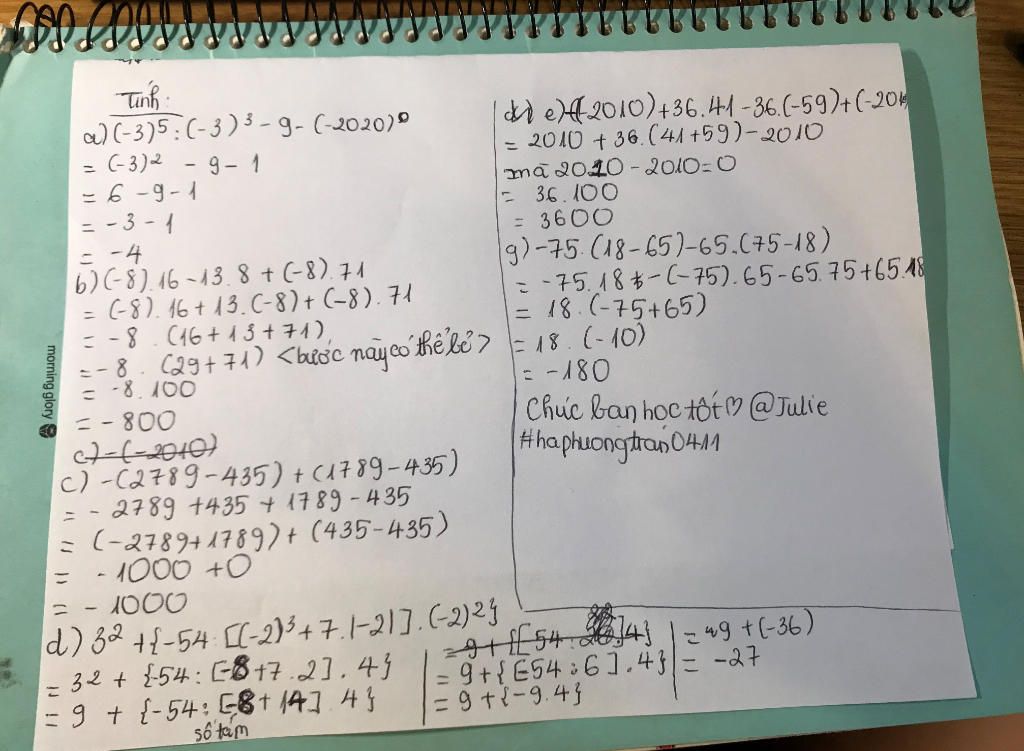 Tính:
a) (-3)⁵ : (-3)³ - 9 - (-2020)⁰
= (-3)² - 9 - 1
= 6 - 9 - 1
= -3 - 1
= -4
b) (-8).16 - 13.8 + (-8).71
= (-8).16 + 13.(-8) + (-8).71
= -8 . (16 + 13 + 71)
= -8 . (29 + 71) <bước này có thể bỏ>
= -8.100
= -800
c) -(-2010)
c) -(2789 - 435) + (1789 - 435)
= - 2789 + 435 + 1789 - 435
= (-2789 + 1789) + (435 - 435)
= -1000 + 0
= -1000
d) 3² + {-54 : [(-2)³ + 7.|-2|] . (-2)²}
= 3² + {-54 : [-8 + 7.2] . 4}
= 9 + {-54 : [-8 + 14] . 4}
số tám
= 9 + {[-54 : 6] . 4}
= 9 + {-9.4}
= 9 + (-36)
= -27
e) -(-2010) + 36.41 - 36.(-59) + (-2010
= 2010 + 36.(41 + 59) - 2010
mà 2010 - 2010 = 0
= 36.100
= 3600
g) -75.(18 - 65) - 65.(75 - 18)
= -75.18 - (-75).65 - 65.75 + 65.18
= 18.(-75 + 65)
= 18.(-10)
= -180
Chúc bạn học tốt♡ @Julie
#haphuongtran0411
morning glory